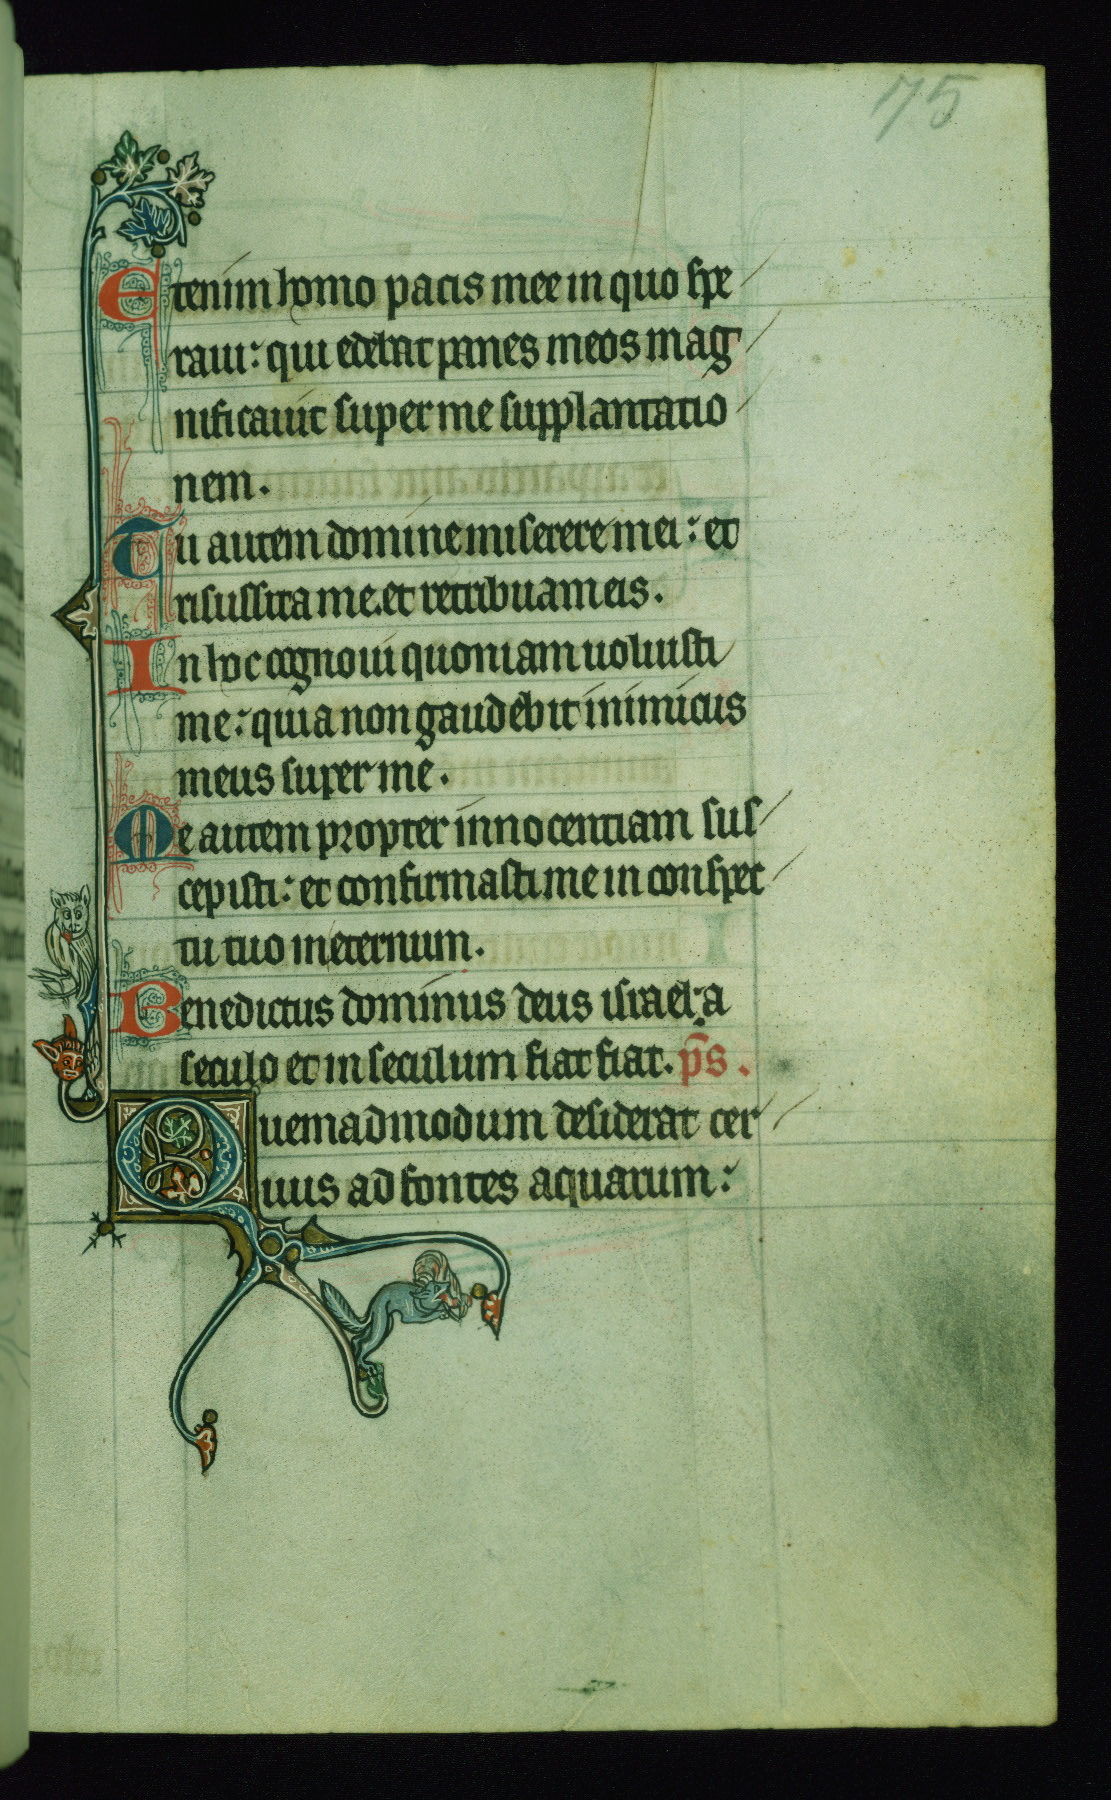 75
Etenim homo pacis mee in quo spe
raui: qui edebat panes meos mag
nificauit super me supplantatio
nem.
Tu autem domine miserere mei: et
risussita me. et retribuam eis.
In hoc cognoui quoniam uoluisti
me: quia non gaudebit inimicus
meus super me.
Me autem propter innocentiam sus
cepisti: et confirmasti me in conspec
tu tuo in eternum.
Benedictus dominus deus israel: a
seculo et in seculum fiat fiat. ps̄.
Quemadmodum desiderat cer
uus ad fontes aquarum: